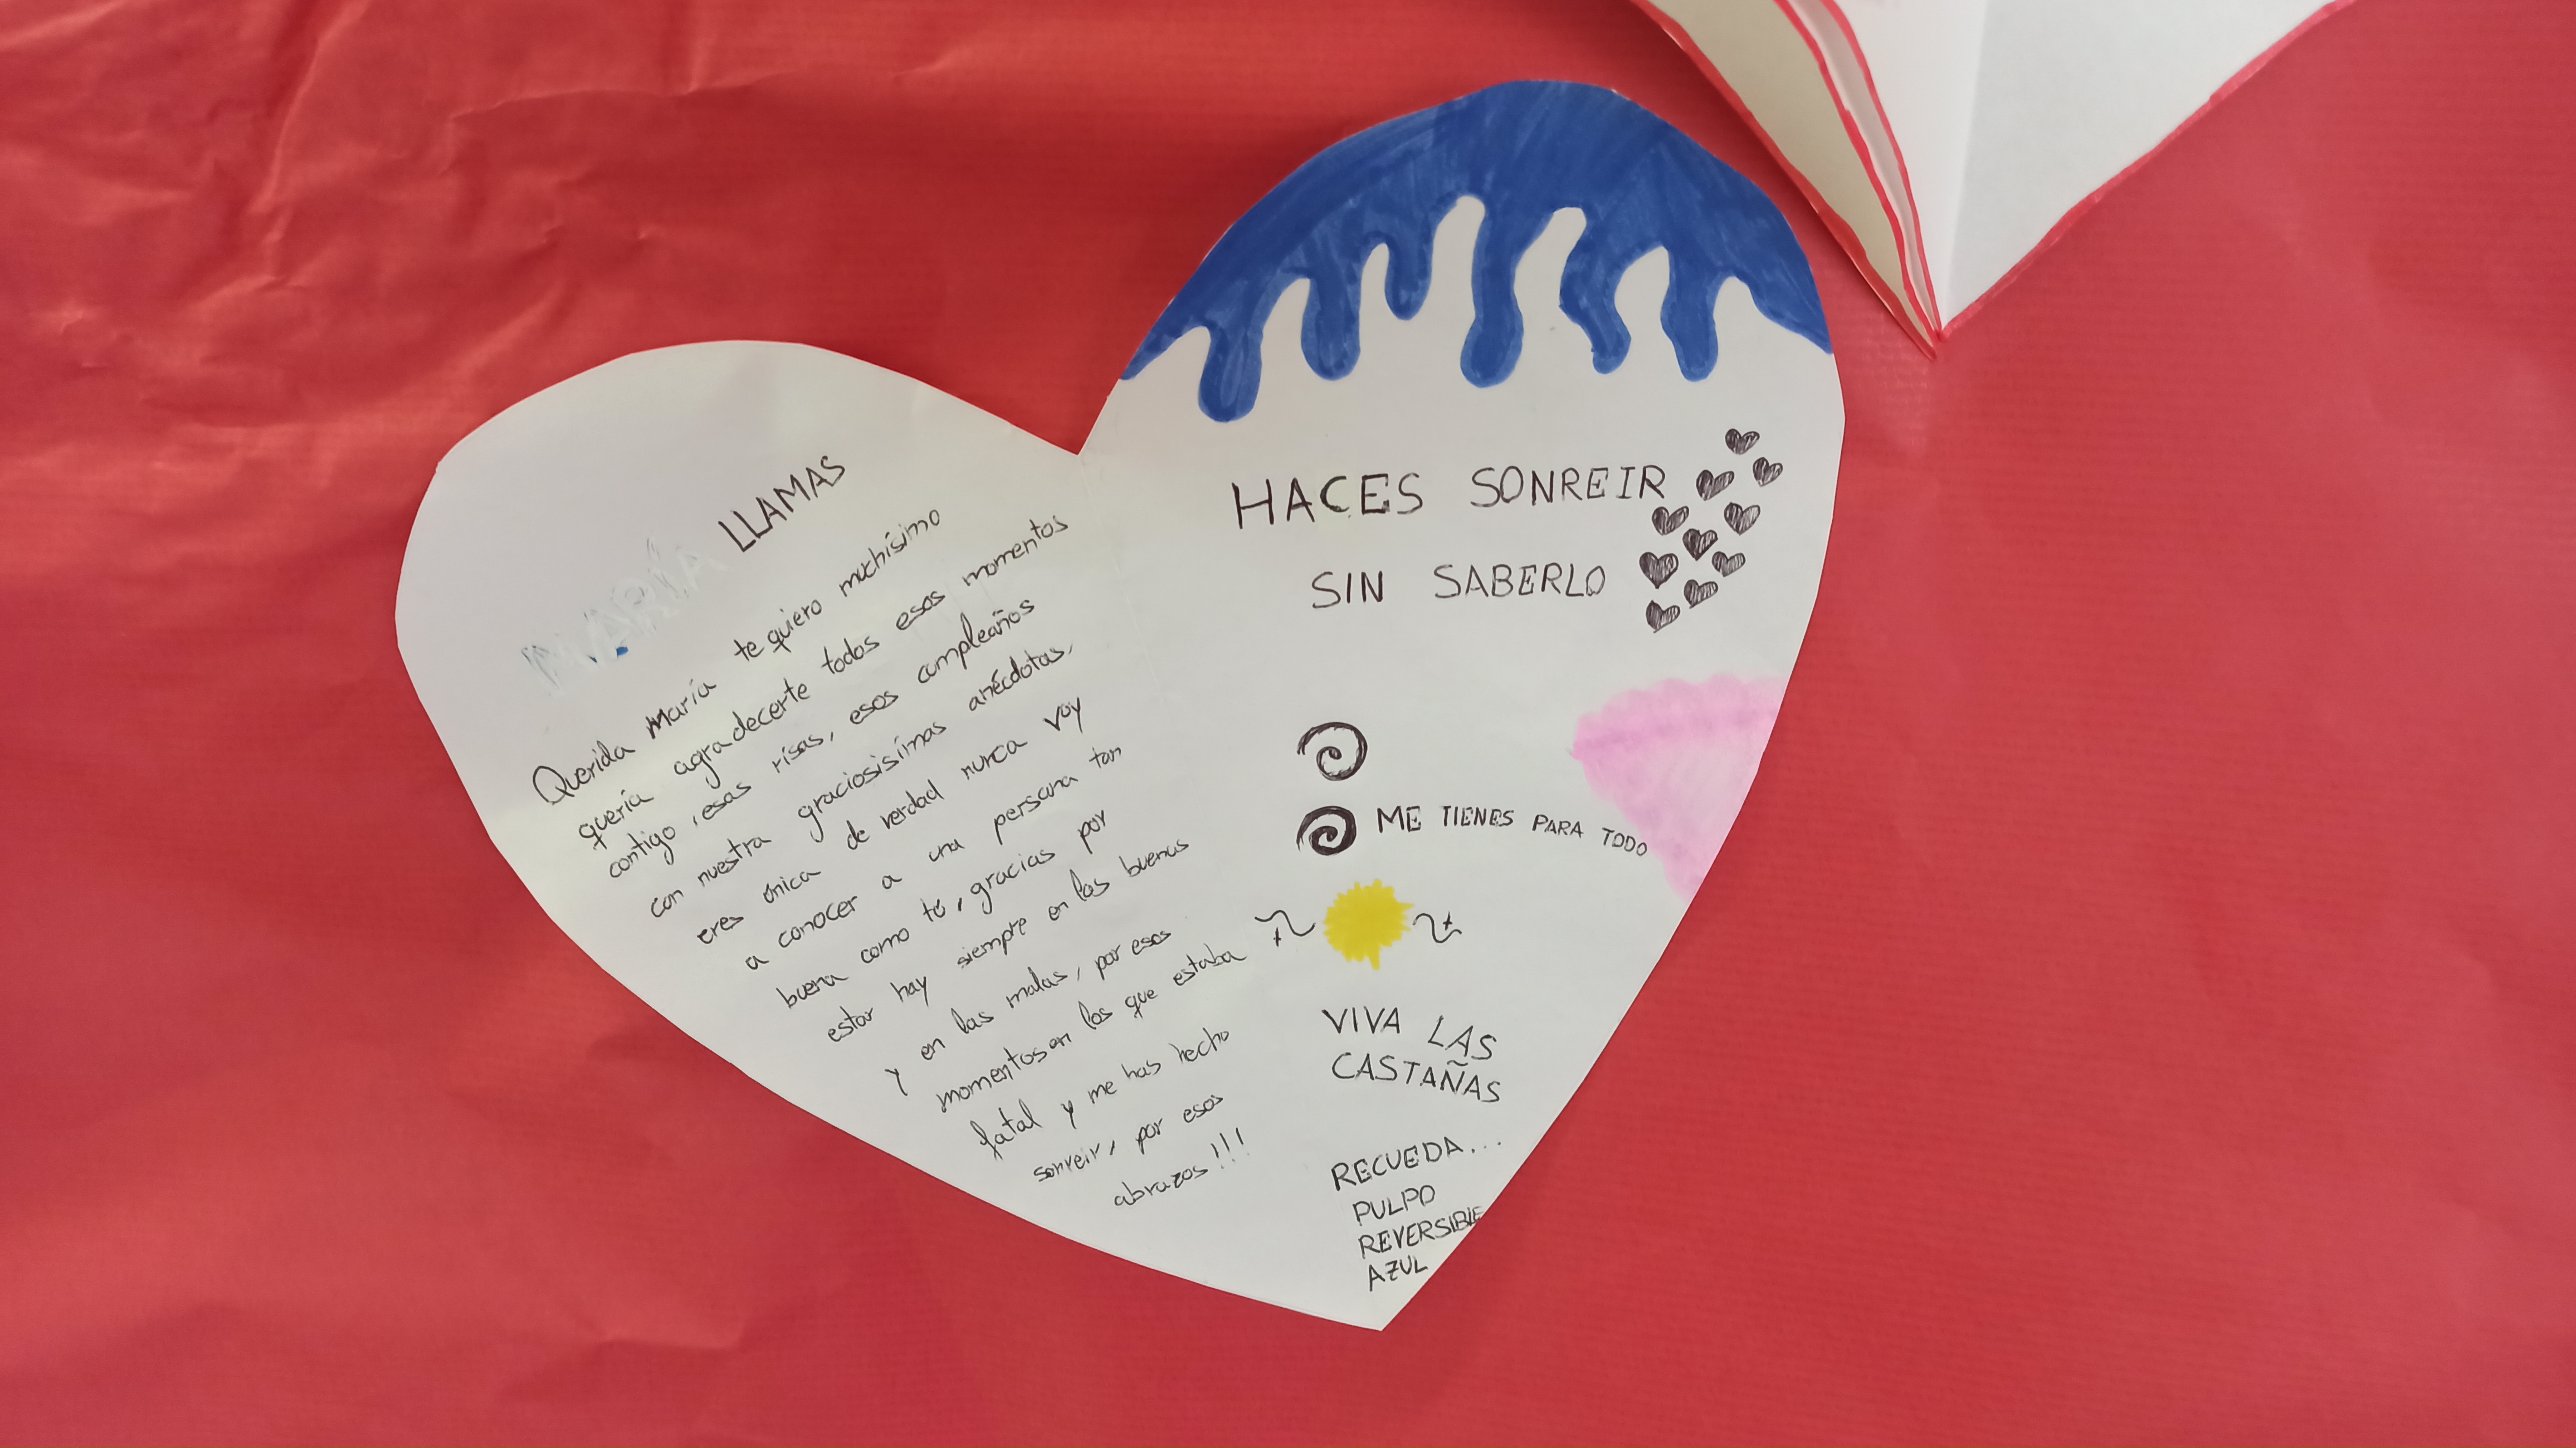 MARÍA LLAMAS
Querida María te quiero muchísimo
quería agradecerte todos esos momentos
contigo, esas risas, esos cumpleaños
con nuestra graciosisímas anécdotas,
eres única de verdad nunca voy
a conocer a una persona tan
buena como tú, gracias por
estar hay siempre en las buenas
y en las malas, por esos
momentos en los que estaba
fatal y me has hecho
sonreir, por esos
abrazos!!!
HACES SONREIR
SIN SABERLO
ME TIENES PARA TODO
VIVA LAS
CASTAÑAS
RECUEDA...
PULPO
REVERSIBLE
AZUL